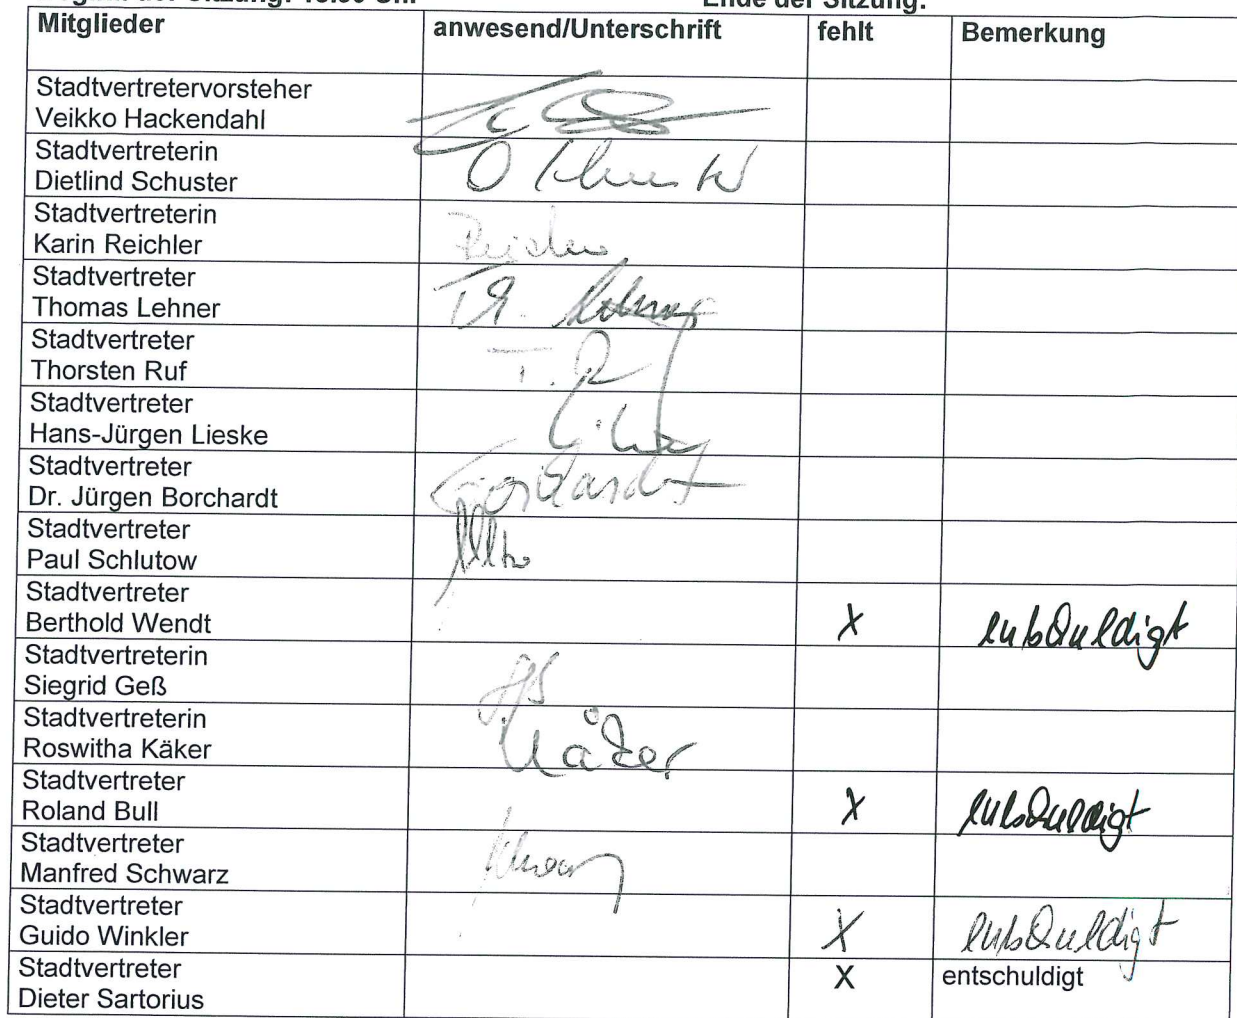 Ende der Sitzung:
Mitglieder anwesend/Unterschrift fehlt Bemerkung
Stadtvertretervorsteher
Veikko Hackendahl
Stadtvertreterin
Dietlind Schuster
Stadtvertreterin
Karin Reichler
Stadtvertreter
Thomas Lehner
Stadtvertreter
Thorsten Ruf T. R
Stadtvertreter
Hans-Jürgen Lieske
Stadtvertreter
Dr. Jürgen Borchardt Borchardt
Stadtvertreter
Paul Schlutow
Stadtvertreter
Berthold Wendt X entschuldigt
Stadtvertreterin
Siegrid Geß
Stadtvertreterin
Roswitha Käker Käker
Stadtvertreter
Roland Bull X entschuldigt
Stadtvertreter
Manfred Schwarz
Stadtvertreter
Guido Winkler X entschuldigt
Stadtvertreter
Dieter Sartorius X entschuldigt